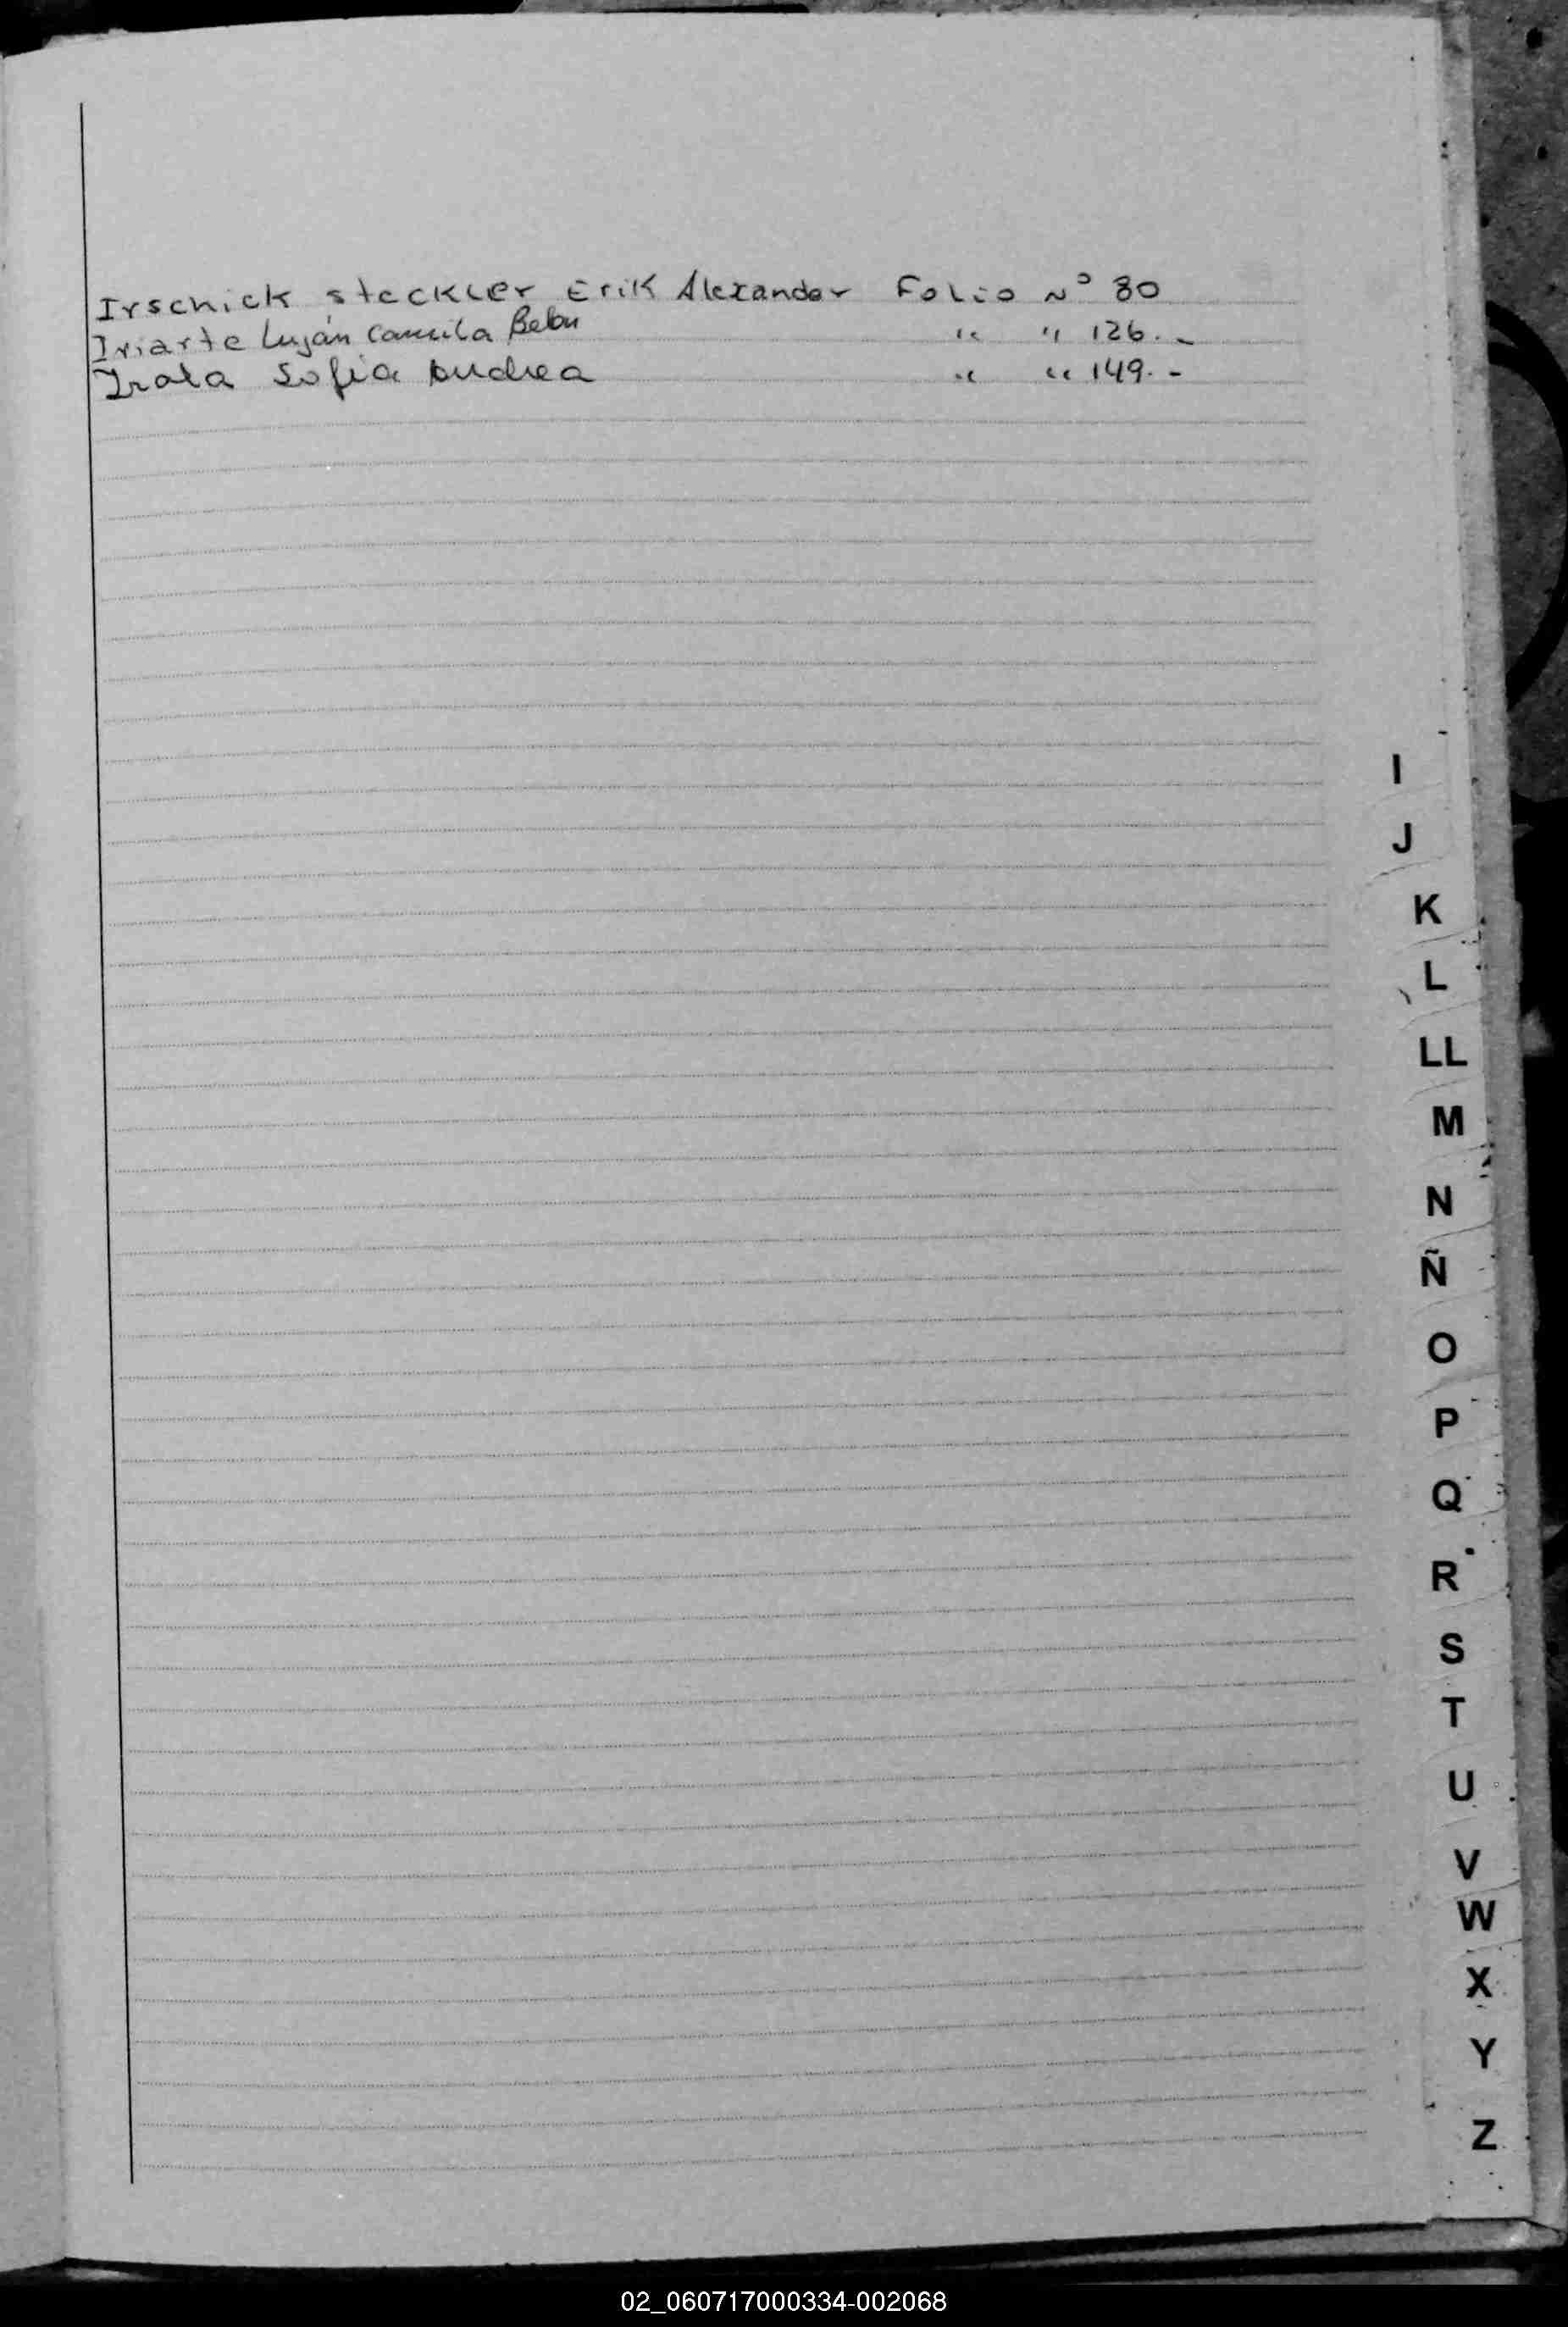 Irschick steckler Erik Alexander Folio N° 80
Iriarte Luján Camila Belen " " 126.-
Irala Sofia Andrea " " 149.-
I
J
K
L
LL
M
N
Ñ
O
P
Q
R
S
T
U
V
W
X
Y
Z
02_060717000334-002068